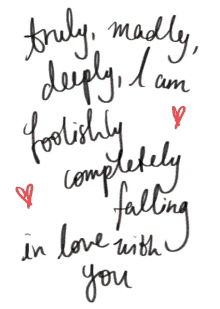 truly, madly,
deeply, I am
foolishly
completely
falling
in love with
you